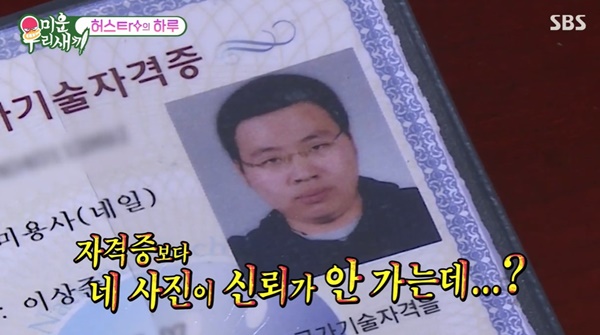 미운
우리새끼
허스트라의 하루
SBS
가기술자격증
미용사(네일)
: 이상
자격증보다
네 사진이 신뢰가 안 가는데...?